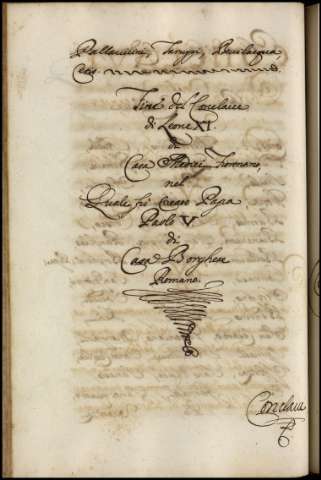 Pallavicini, Serugi, Bevilacqua,
Cesi
Fine del Conclave
di Leone XI.
di
Casa Medici Fiorentino,
nel
Quale fù Creato Papa
Paolo V
di
Casa Borghese
Romano.
Conclave